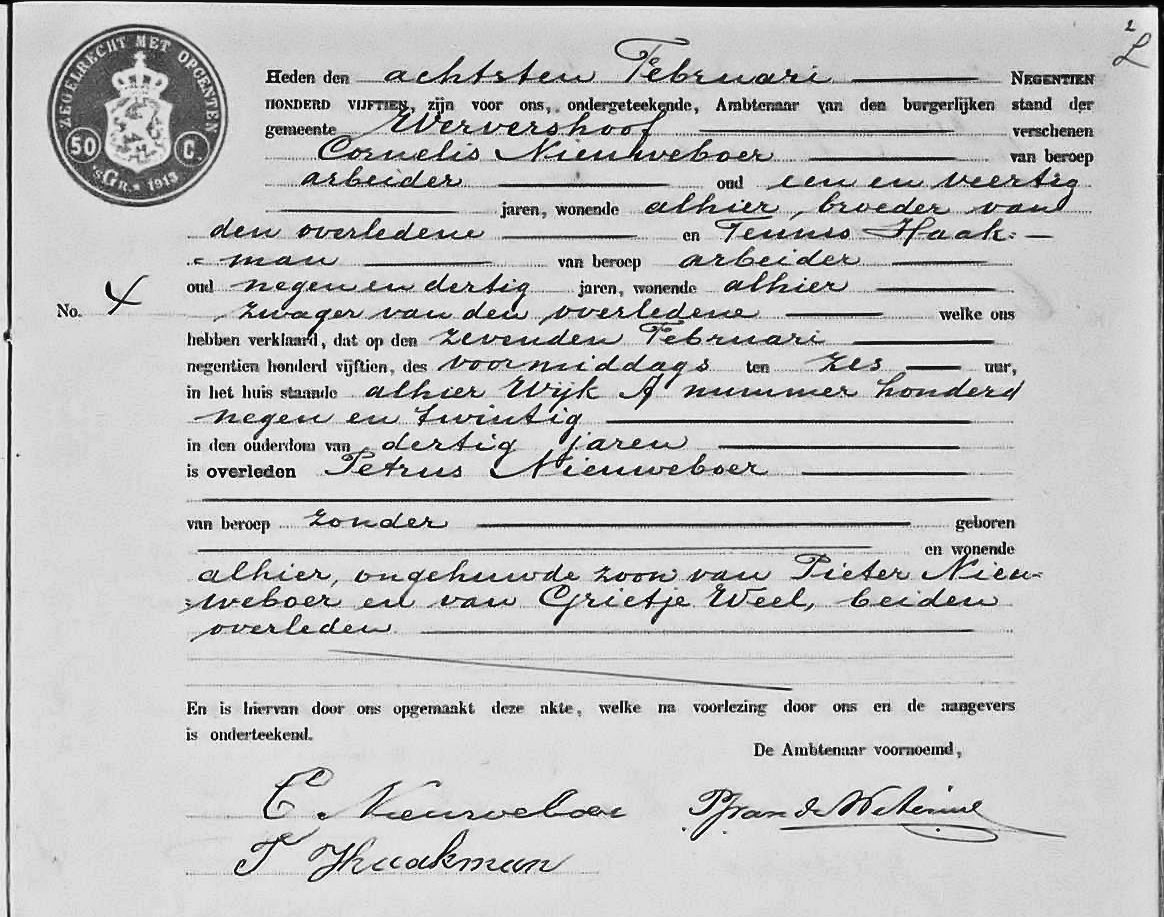 2
L
ZEGELRECHT MET OPCENTEN
50 C.
'sGR. 1913
Heden den achtsten Februari NEGENTIEN
HONDERD VIJFTIEN, zijn voor ons, ondergeteekende, Ambtenaar van den burgerlijken stand der
gemeente Wervershoof verschenen
Cornelis Nieuweboer van beroep
arbeider oud een en veertig
jaren, wonende alhier, broeder van
den overledene en Teunis Haak-
man van beroep arbeider
oud negen en dertig jaren, wonende alhier
No. 4 zwager van den overledene welke ons
hebben verklaard, dat op den zevenden Februari
negentien honderd vijftien, des voormiddags ten zes uur,
in het huis staande alhier Wijk A nummer honderd
negen en twintig
in den ouderdom van dertig jaren
is overleden Petrus Nieuweboer
van beroep zonder geboren
en wonende
alhier, ongehuwde zoon van Pieter Nieu-
weboer en van Grietje Weel, beiden
overleden.
En is hiervan door ons opgemaakt deze akte, welke na voorlezing door ons en de aangevers
is onderteekend.
De Ambtenaar voornoemd,
C Nieuweboer
T Haakman